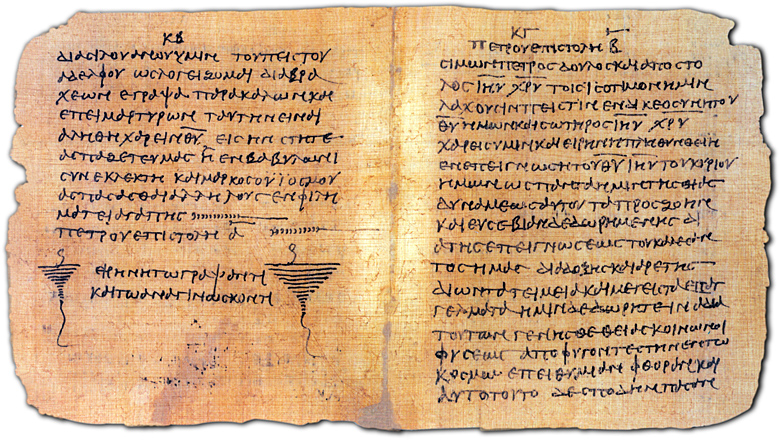 ΚΒ
ΔΙΑ ϹΙΛΟΥΑΝΟΥ ΥΜΙΝ ΤΟΥ ΠΙϹΤΟΥ
ΑΔΕΛΦΟΥ ΩϹ ΛΟΓΕΙΖΟΜΑΙ ΔΙΑ ΒΡΑ
ΧΕΩΝ ΕΓΡΑΨΑ ΠΑΡΑΚΑΛΩΝ ΚΑΙ
ΕΠΕΙΜΑΡΤΥΡΩΝ ΤΑΥΤΗΝ ΕΙΝΑΙ
ΑΛΗΘΗ ΧΑΡΕΙΝ Θ̅Υ̅ ΕΙϹ ΗΝ ϹΤΗΤΕ
ΑϹΠΑΖΕΤΕ ΥΜΑϹ Η ΕΝ ΒΑΒΥΛΩΝΙ
ϹΥΝΕΚΛΕΚΤΗ ΚΑΙ ΜΑΡΚΟϹ Ο ΥΙΟϹ ΜΟΥ
ΑϹΠΑϹΑϹΘΑΙ ΑΛΛΗΛΟΥϹ ΕΝ ΦΙΛΗ
ΜΑΤΕΙ ΑΓΑΠΗϹ
ΠΕΤΡΟΥ ΕΠΙϹΤΟΛΗ Α̅
ΕΙΡΗΝΗ ΤΩ ΓΡΑΨΑΝΤΙ
ΚΑΙ ΤΩ ΑΝΑΓΙΝΩϹΚΟΝΤΙ
ΚΓ
ΠΕΤΡΟΥ ΕΠΙϹΤΟΛΗ Β̅
ϹΙΜΩΝ ΠΕΤΡΟϹ ΔΟΥΛΟϹ ΚΑΙ ΑΠΟϹΤΟ
ΛΟϹ Ι̅Η̅Υ̅ Χ̅Ρ̅Υ̅ ΤΟΙϹ ΙϹΟΤΙΜΟΝ ΗΜΙΝ
ΛΑΧΟΥϹΙΝ ΠΕΙϹΤΙΝ ΕΝ ΔΙΚΕΟϹΥΝΗ ΤΟΥ
Θ̅Υ̅ ΗΜΩΝ ΚΑΙ ϹΩΤΗΡΟϹ Ι̅Η̅Υ̅ Χ̅Ρ̅Υ̅
ΧΑΡΕΙϹ ΥΜΙΝ ΚΑΙ ΕΙΡΗΝΗ ΠΛΗΘΥΝΘΕΙΗ
ΕΝ ΕΠΕΙΓΝΩϹΗ ΤΟΥ Θ̅Υ̅ Ι̅Η̅Υ̅ ΤΟΥ ΚΥΡΙΟΥ
ΗΜΩΝ ΩϹ ΠΑΝΤΑ ΗΜΙΝ ΤΗϹ ΘΙΑϹ
ΔΥΝΑΜΕΩϹ ΑΥΤΟΥ ΤΑ ΠΡΟϹ ΖΩΗΝ
ΚΑΙ ΕΥϹΕΒΙΑΝ ΔΕΔΩΡΗΜΕΝΗϹ ΔΙ
Α ΤΗϹ ΕΠΕΙΓΝΩϹΕΩϹ ΤΟΥ ΚΑΛΕϹΑΝ
ΤΟϹ ΗΜΑϹ ΔΙΑ ΔΟΞΗϹ ΚΑΙ ΑΡΕΤΗϹ
ΔΙ ΩΝ ΤΑ ΤΕΙΜΕΙΑ ΚΑΙ ΜΕΓΕΙϹΤΑ ΕΠΑΓ
ΓΕΛΜΑΤΑ ΗΜΙΝ ΔΕΔΩΡΗΤΕ ΙΝΑ ΔΙΑ
ΤΟΥΤΩΝ ΓΕΝΗϹΘΕ ΘΕΙΑϹ ΚΟΙΝΩΝΟΙ
ΦΥϹΕΩϹ ΑΠΟΦΥΓΟΝΤΕϹ ΤΗΝ ΕΝ ΤΩ
ΚΟϹΜΩ ΕΠΕΙΘΥΜΙΑΝ ΦΘΟΡΑΝ ΚΑΙ
ΑΥΤΟ ΤΟΥΤΟ ΔΕ ϹΠΟΥΔΗΝ ΠΑϹΑΝ